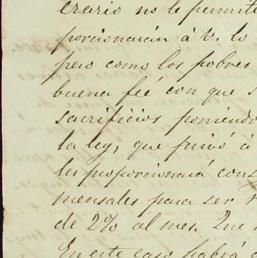 erario no le permite
porcionarán á V. lo
pero como los pobres
buena fé con que s
sacrificios poniendo
la ley, que privó á
les proporcionará cons
mensales para ser
de 2% al mes. Que
En este caso habrá